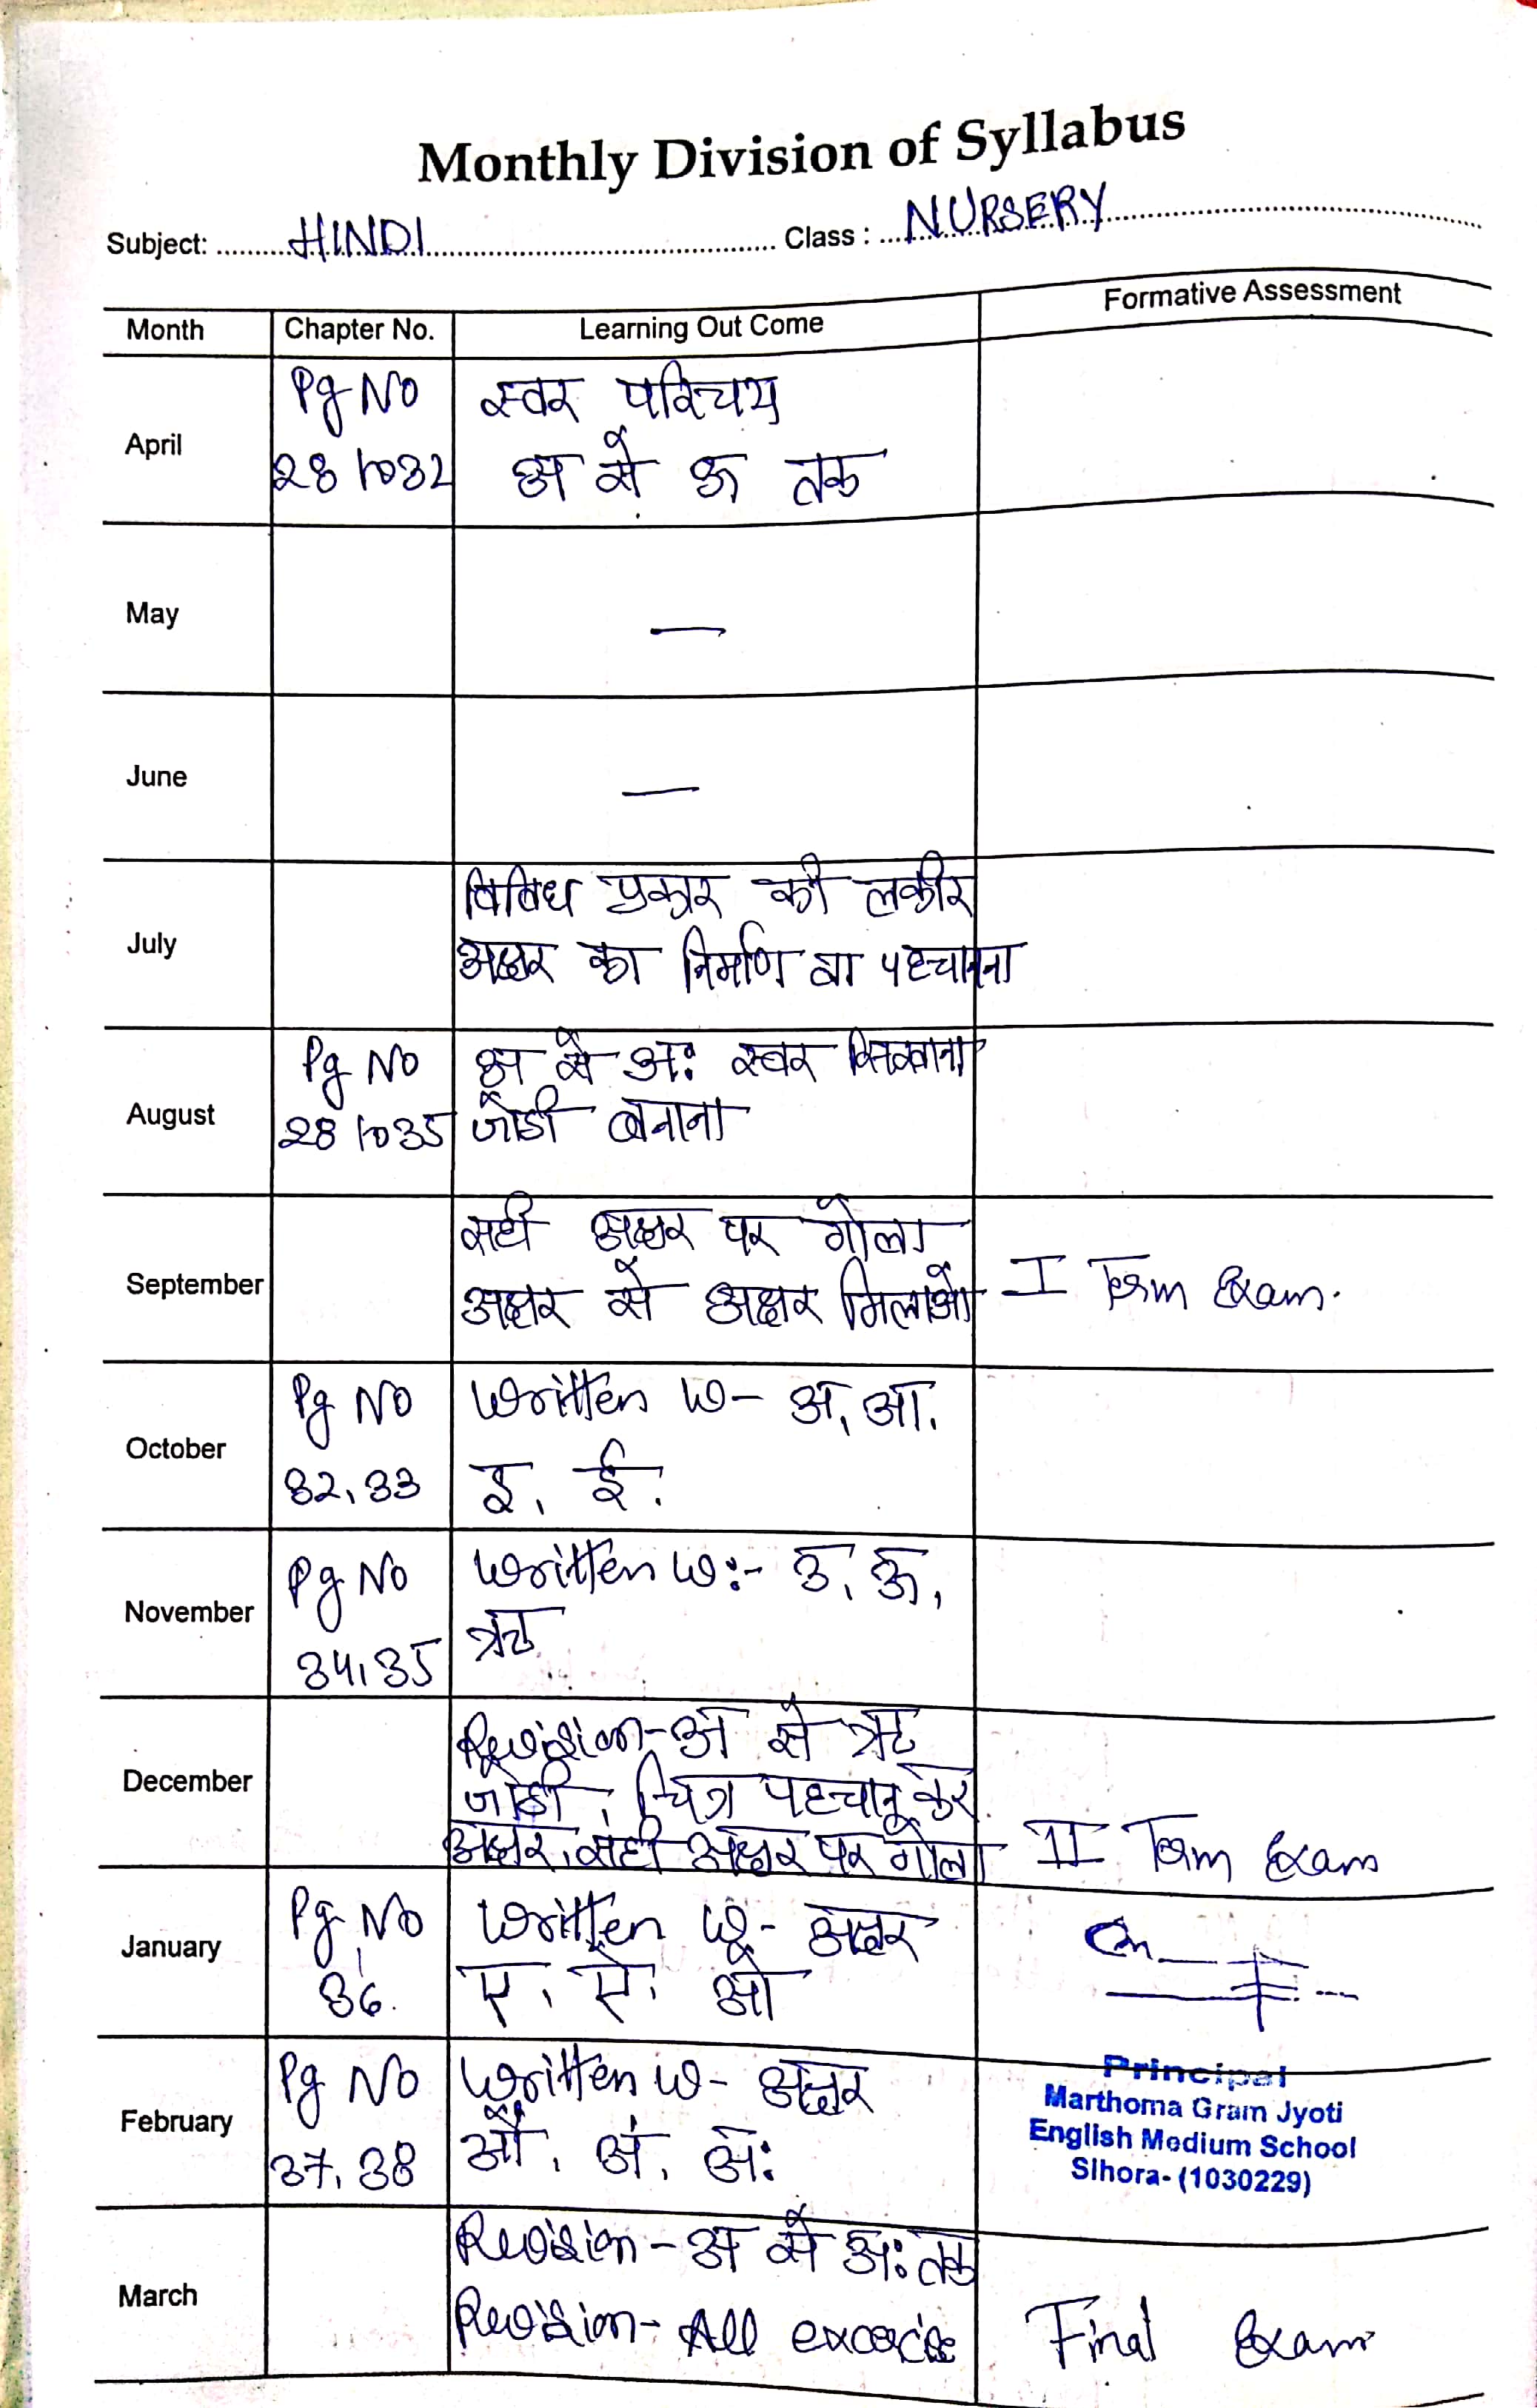 Monthly Division of Syllabus
Subject: HINDI Class : NURSERY
Month Chapter No. Learning Out Come Formative Assessment
April Pg No स्वर परिचय
28 to 32 अ से ऊ तक
May —
June —
July विविध प्रकार की लकीर
अक्षर का निर्माण वा पहचानना
August Pg No अ से अः स्वर सिखाना
28 to 35 जोडी बनाना
September सही अक्षर पर गोला
अक्षर से अक्षर मिलाओ I Term Exam.
October Pg No Written W- अ, आ,
32, 33 इ, ई.
November Pg No Written W:- उ, ऊ,
34, 35 ऋ
December Revision - अ से ऋ
जोडी, चित्र पहचान कर
अक्षर, सही अक्षर पर गोला II Term Exam
January Pg No Written W- अक्षर
36. ए, ऐ, ओ
February Pg No Written W- अक्षर
37, 38 औ, अं, अः
Principal
Marthoma Gram Jyoti
English Medium School
Sihora- (1030229)
March Revision - अ से अः तक
Revision - All excercise Final Exam